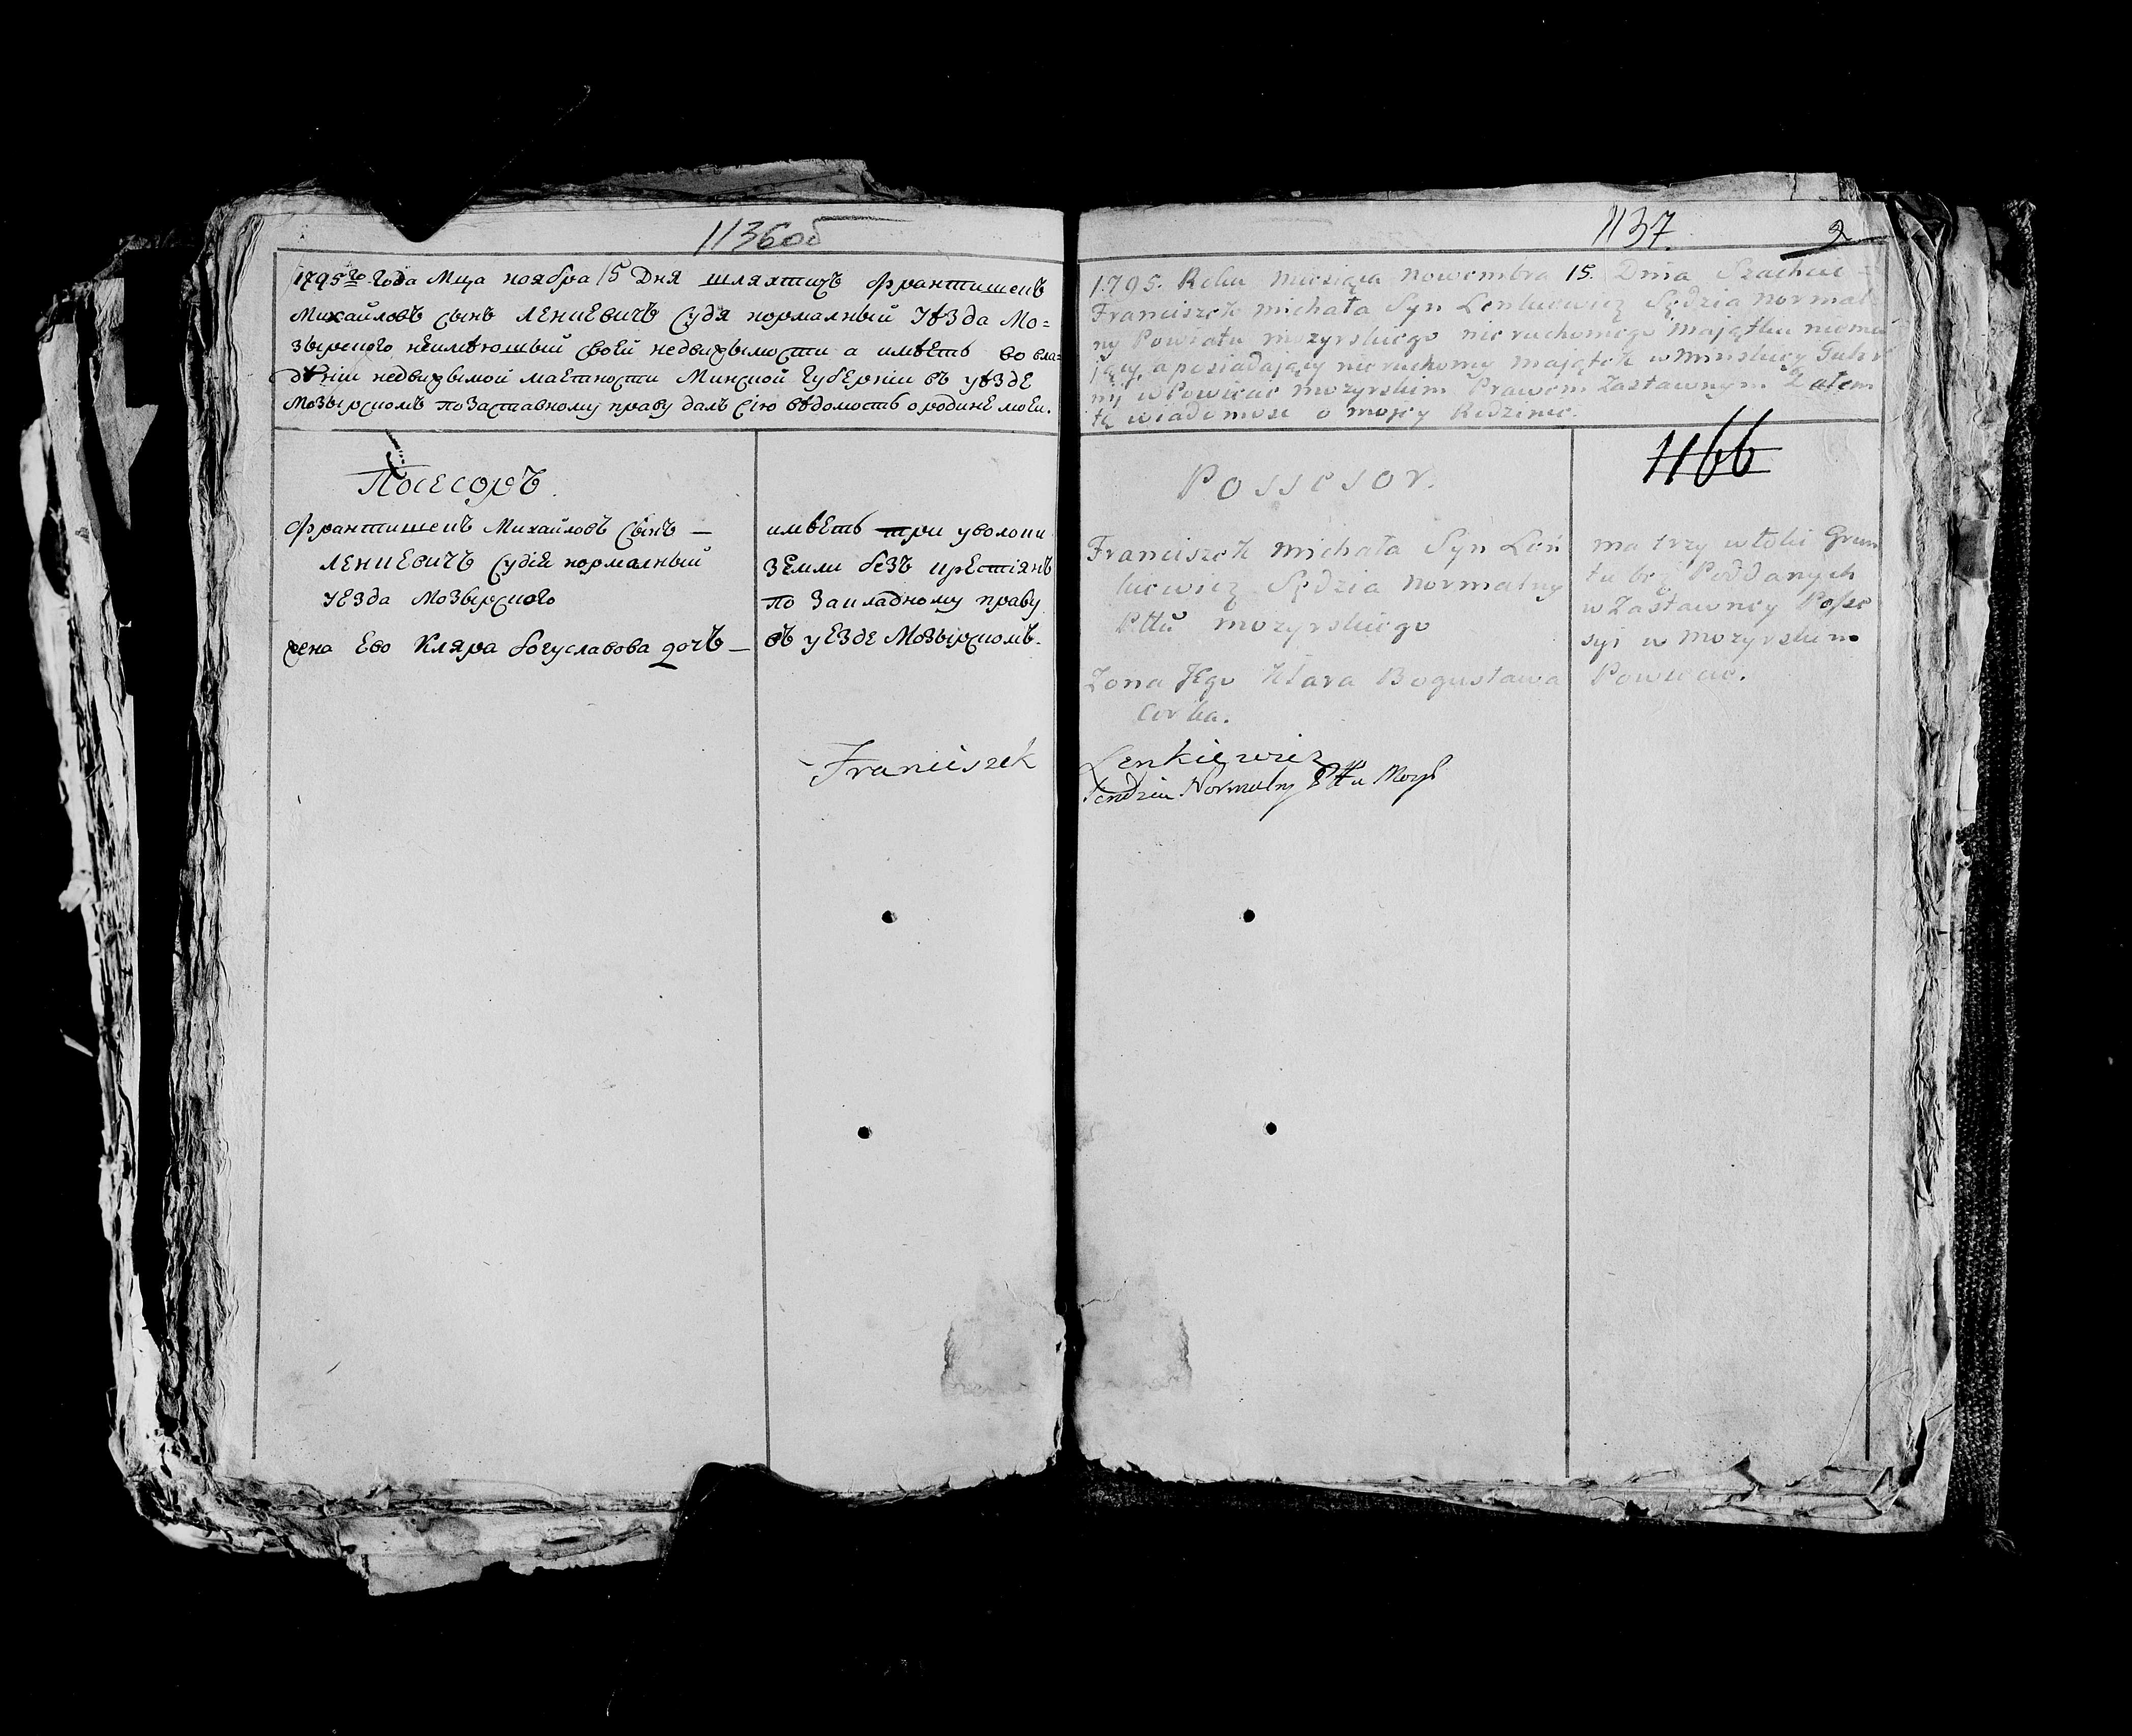 1136об
1795го Года Мца ноября 15 Дня шляхтичъ Франтишекъ
Михайловъ сынъ Ленкевичъ Судя нормалный Уѣзда Мо=
зырского неимѣюшый своей недвижымости а имѣетъ во вла=
дѣніи недвижымой маетности Минской Губерніи въ уѣзде
Мозырскомъ по Заставному праву далъ сію вѣдомость о родине моей.
Посесоръ.
Франтишекъ Михайловъ Сынъ —
Ленкевичъ Судія нормалный
Уезда Мозырского
жена Ево Кляра Богуславова дочъ —
имѣетъ три уволоки
Земли безъ крестіянъ
по Закладному праву
въ уезде Мозырскомъ.
Franciszek
1137
2
1795. Roku Miesiąca Nowembra 15. Dnia Szachcic =
Franciszek Michała Syn Lenkiewicz Sędzia Normal=
ny Powiatu Mozyrskiego nieruchomego Majątku niema
jący, a posiadający nieruchomy Majątek w Minskiey Guber
nij w Powiecie Mozyrskim Prawem Zastawnym Załem
tę wiadomość o mojey Rodzinie.
1166
Possesor.
Franciszek Michała Syn Leń
kiewicz Sędzia Normalny
Pttu Mozyrskiego
Zona Jego Klara Bogusława
Corka.
ma trzy włoki Grun
tu bez Poddanych
w Zastawney Posse
syi w Mozyrskim
Powiecie.
Lenkiewicz
Sendzia Normalny Pttu Mozyr